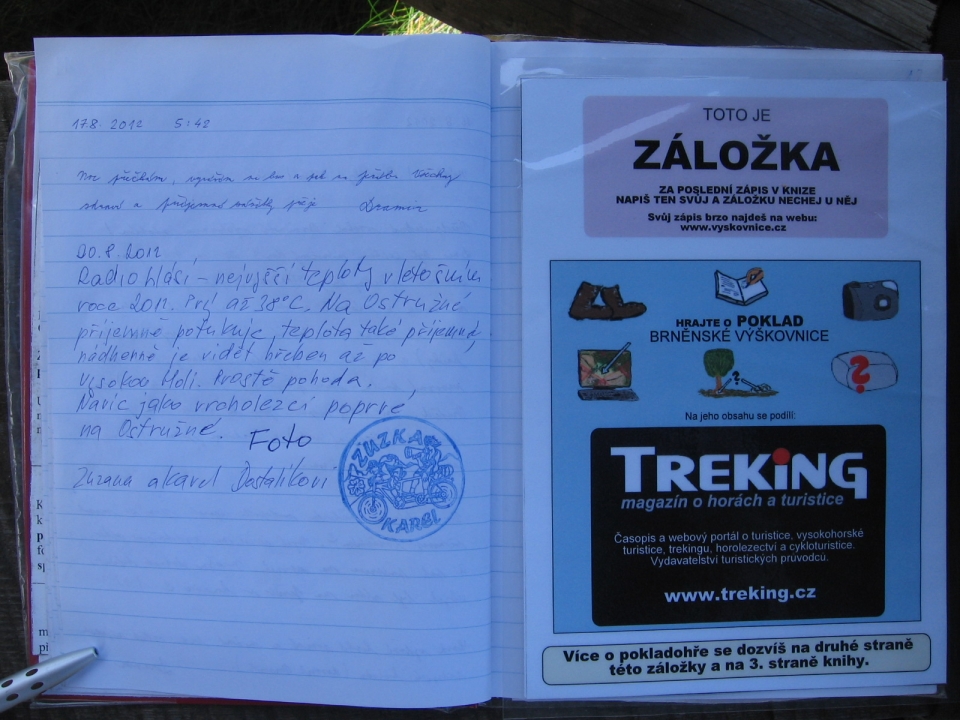 17.8. 2012 5:42
a
zdraví a
20.8.2012
Radio hlásí – nejvyšší teploty v letošním
roce 2012. Prý až 38°C. Na Ostružné
příjemně pofukuje, teplota také příjemná,
nádherně je vidět hřeben až po
Vysokou Holi. Prostě pohoda.
Navíc jako vrcholezci poprvé
na Ostružné. Foto
Zuzana a Karel Dostálíkovi
ZUZKA
KAREL
TOTO JE
ZÁLOŽKA
ZA POSLEDNÍ ZÁPIS V KNIZE
NAPIŠ TEN SVŮJ A ZÁLOŽKU NECHEJ U NĚJ
Svůj zápis brzo najdeš na webu:
www.vyskovnice.cz
HRAJTE O POKLAD
BRNĚNSKÉ VÝŠKOVNICE
Na jeho obsahu se podílí:
TREKING
magazín o horách a turistice
Časopis a webový portál o turistice, vysokohorské
turistice, trekingu, horolezectví a cykloturistice.
Vydavatelství turistických průvodců.
www.treking.cz
Více o pokladohře se dozvíš na druhé straně
této záložky a na 3. straně knihy.